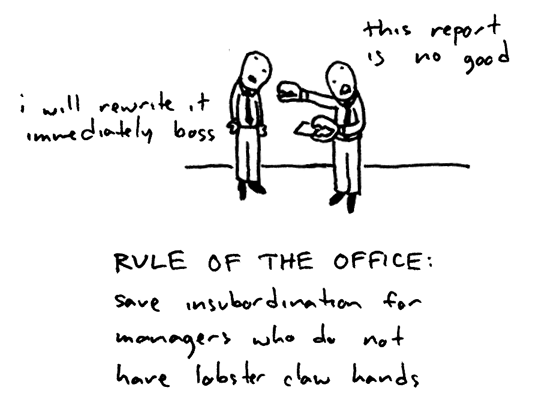 this report
is no good
i will rewrite it
immediately boss
RULE OF THE OFFICE:
save insubordination for
managers who do not
have lobster claw hands